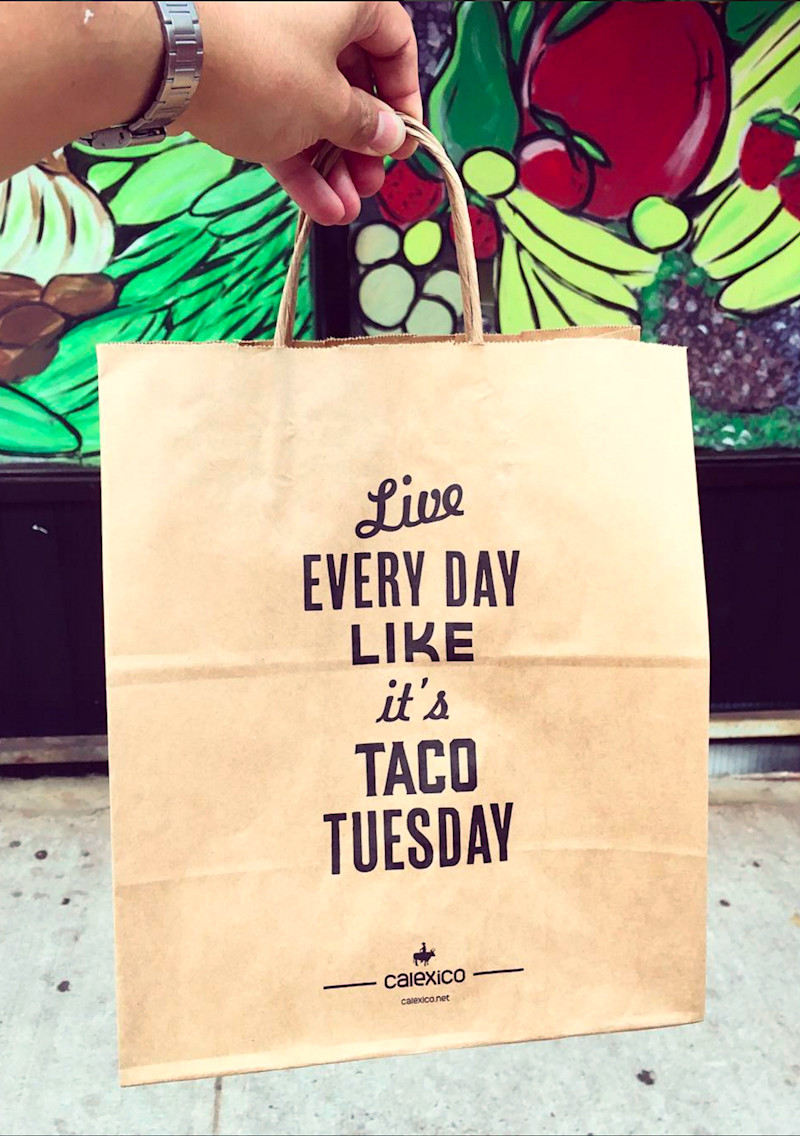 Live
EVERY DAY
LIKE
it's
TACO
TUESDAY
calexico
calexico.net